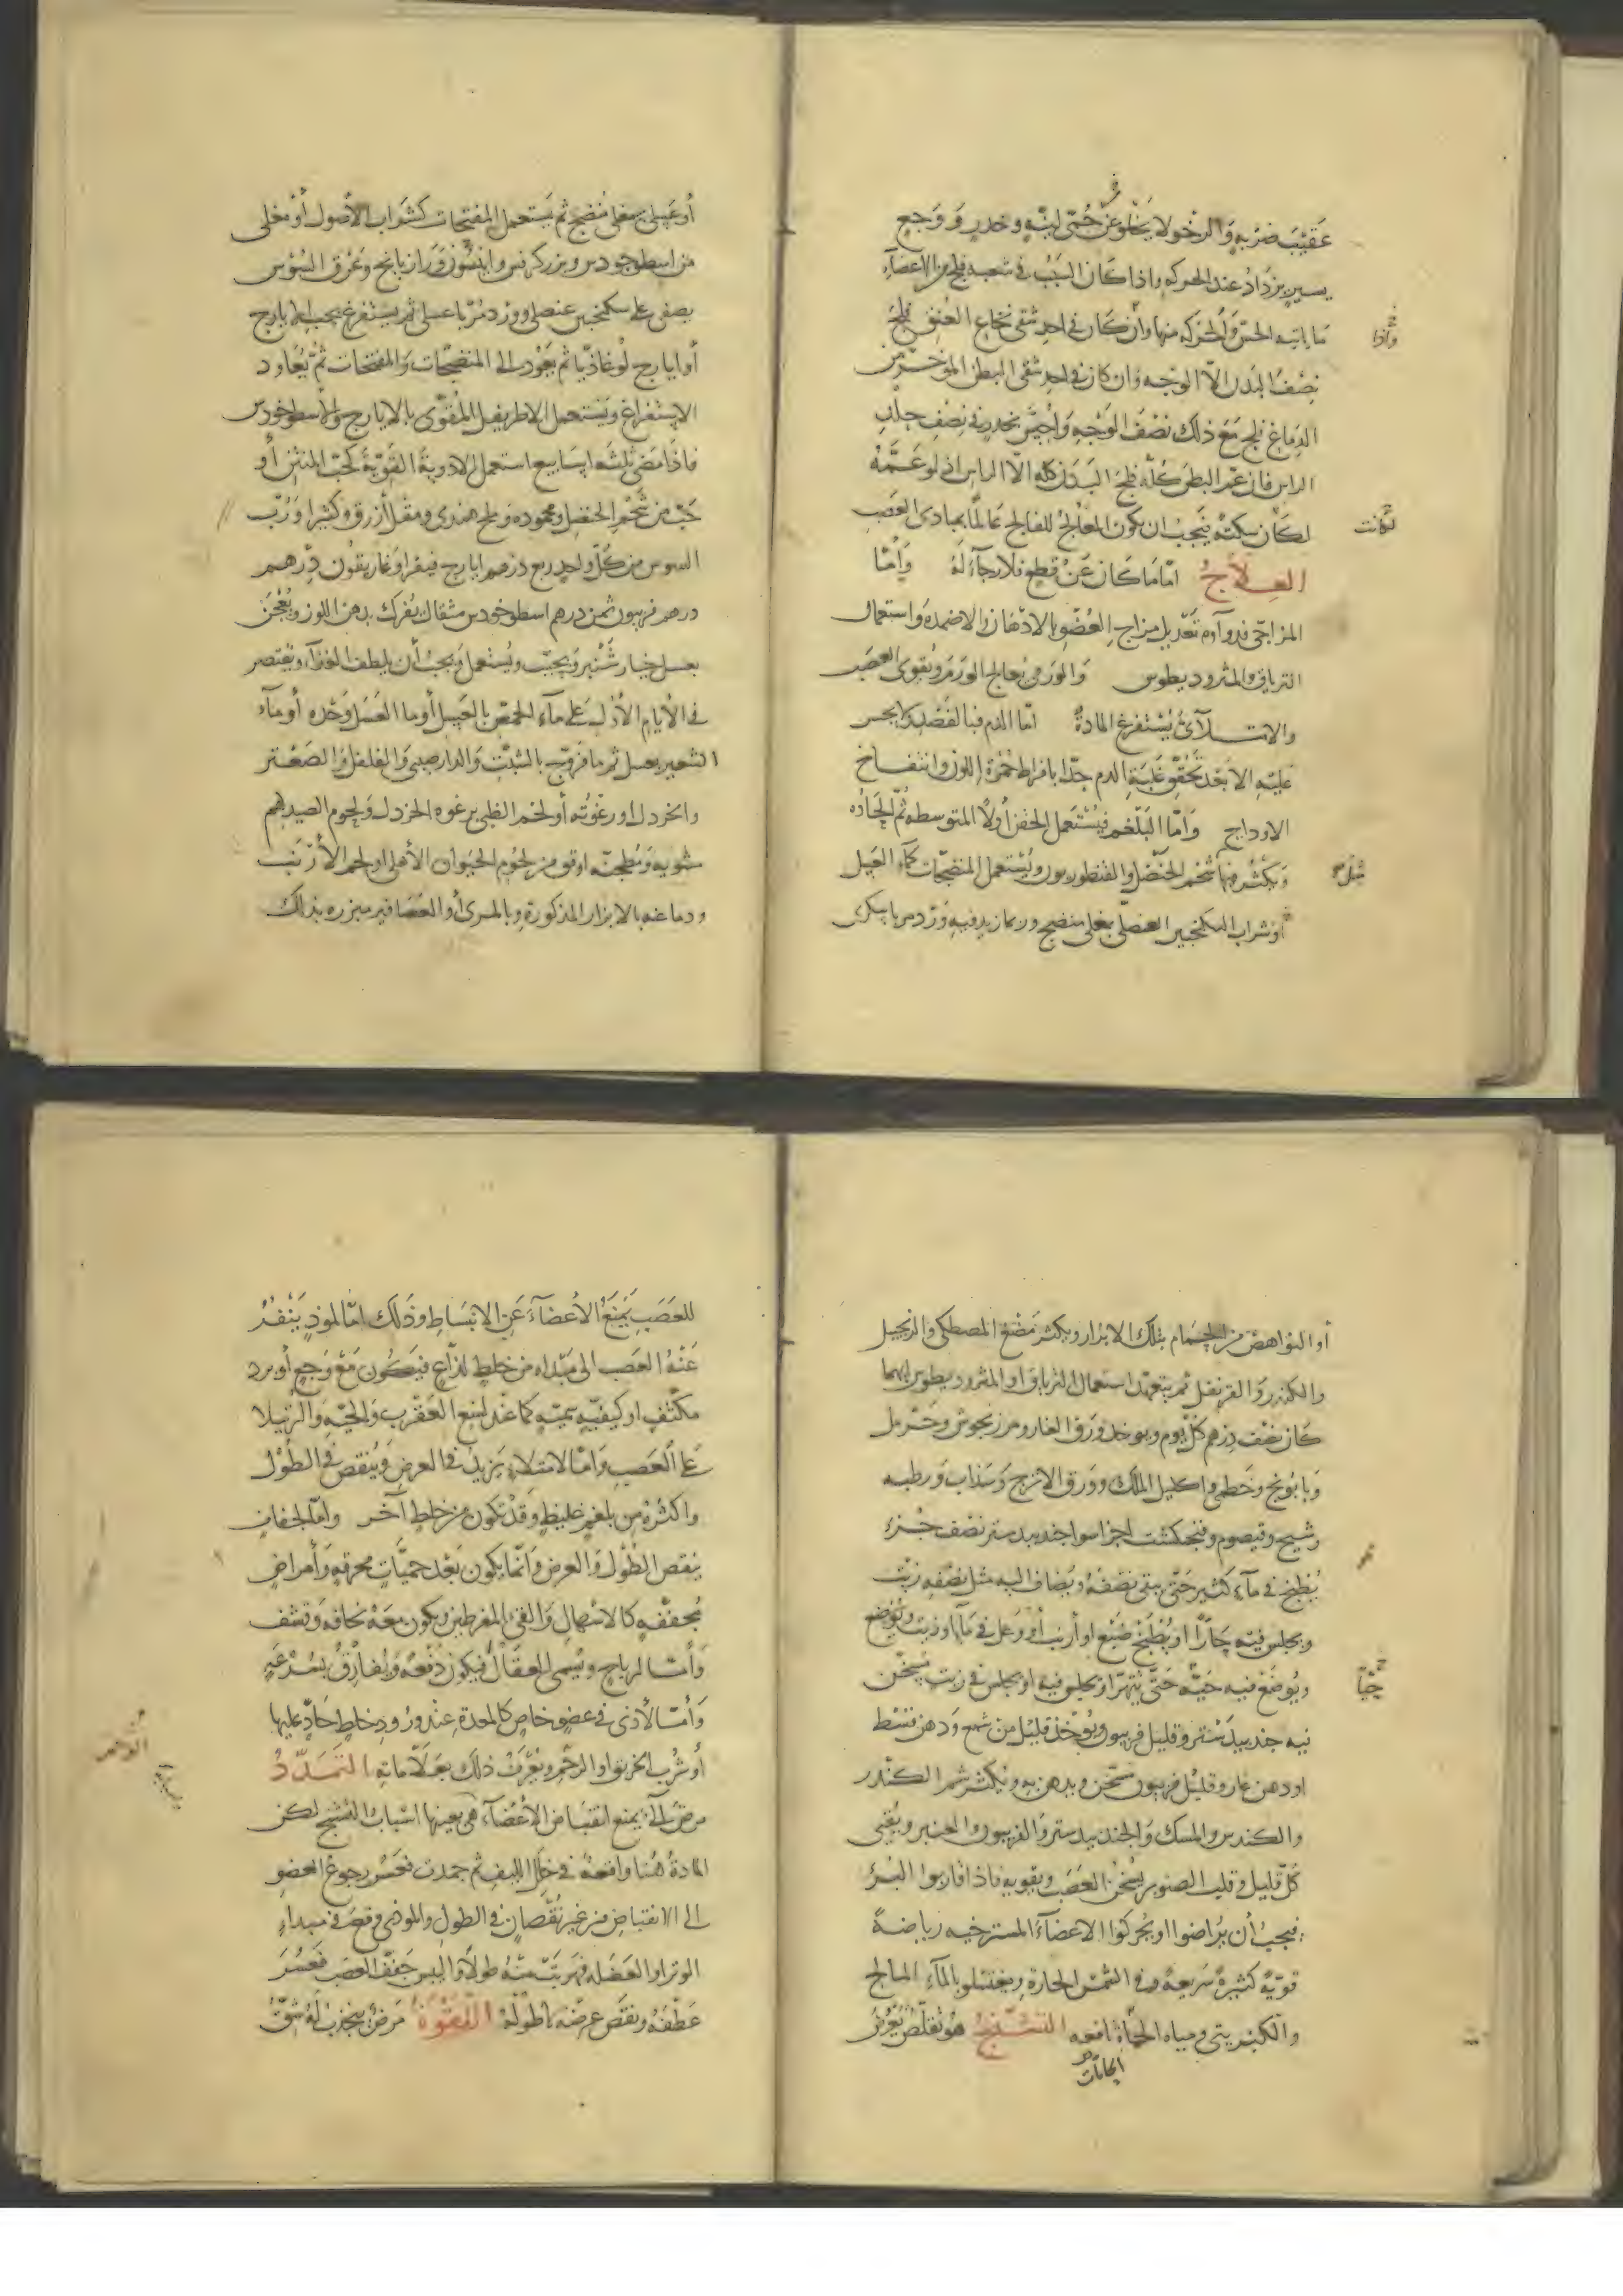 عَقيْبَ ضربةٍ وَالرخولا يخلو عن حُمّى لينةٍ وخدرٍ وَوَجعٍ
يسيرٍ يزدَادُ عند الحركه واذا كان السَّبَبُ في شعبه فلج من الاعضآءِ
وَاذا
مَا ياتيه الحسّ وَالحركه منها وَان كان في احد شقي نخاع العُنق فلج
نِصْفُ البَدن الّا الوَجه وَان كان في احد شقى البطن المؤخّر من
الدماغ فلج مَع ذلك نصْفَ الوَجه وَاحسَّ بخدرٍ في نِصْفِ جلدِ
الراس فان عمّ البطن كلّه فلج البَدَن كله الّا الراس اذ لو عَمَّهُ
لكانت
لكَان سكتةً فيَجبُ ان يكون المعالجُ للفالج عَالماً بمبادى العَصَب
العِلَاجُ امّا مَا كان عَنْ قطعٍ فلا رجآءَ لهُ وَامّا
المزاجى فدوآؤه تَعْديل مزاج العُضْو بالادْهَان والاضمده وَاستعمال
الترياق والمثروديطوس وَالورَمى بعالج الورَم وَيُقوى العصَب
والامتلآئىُ يُسْتفرغ المادةُ امّا الدم فبالفَصْد ولا يجسر
عليْهِ الّا بَعْد تَحقّق غَلبَةِ الدم جدّا بافراط حُمْرة اللون وانتفاخ
الاوداج وَامّا البَلْغم فيُسْتَعمل الحقن أولًا المتوسطه ثُمّ الحَادّه
وَيكثر فيها شحم الحَنْضل والقنطوريون ويُسْتعمل المنضجات كمآءِ العَسل
أوْ شراب السكنجبين العنصلى بمغلى منضج وربما زيد فيه وَرْد مربا بسكرٍ
أو عَسلٍ بمغلى مُنضج ثم يَستعمل المفتحات كشَراب الأصول أوْ مغلى
من اسطوخودس وبزر كرفس وانيسُون وَرازيانج وَعرق السُوس
يصفى على سكنجبين عنصلى وورْد مُربّا عسلى ثم يستفرغ بحب الايارج
أو ايارج لُوغاذيّا ثم يَعُود الى المنضجّات وَالمفتحات ثمّ يُعاود
الاستفراغ ويَستعمل الاطريفل المُقوّى بالايارج والاسطوخودس
فاذَا مَضى ثلثه ايسَابيع استعمل الادوية القَويّةَ كحبّ المنتن أو
حَبّ من شَحْم الحَنضل ومحموده وملح هندى ومقل أزرق وكثيرا وَرُبّ
السوس من كلّ واحدٍ ربع درهم ايارج فيقرا وَغاريقُون درهم
درهم فربيون ثمن درهم اسطوخودس مثقال يُفرك بدهن اللوز ويُعْجَن
بعسل خيار شَنْبر ويحبّب ويُستعمل وَيجبُ أن يلطف الغذآء ويقتصر
في الأيام الأوَل عَلى مَآءِ الحمّص بالعَسل أوما العَسل وَحْده أو مَآءِ
الشعير بعسل ثم مافروّج بالشبت وَالدارصينى وَالفلفل وَالصَعْتر
وانخردل او رغْوته أو لحم الظبى برغوه الخردل وَلحوم الصيد لهم
شويه وَمُطجنّه اوفق من لحُوم الحَيوان الأهلى او لحم الأرْنَب
ودماغه بالابزار المذكورة وبالمرى أو العَصَافير مبزره بذلك
أو النواهض من الحمام بتلك الابزار ويكثر مَضْغ المصطكى والزنجبيل
والكندر وَالقرنفل ثم يتعهد استعمال الترياق او المثروديطوس ايهما
كَان نصْف درهم كلّ يَوم ويوخذ وَرَق الغار ومرزنجوش وحَرمل
وَبابُونج وَخطمى واكليل الملك وورَق الاترج وَسَذاب وَرطبه
وشيح وقيصوم وفنجكشت اجزا سوا جندبيدستر نصْف جُزءٍ
يُطبخ في مآءٍ كثير حَتّى يبقى نصْفهُ ويُضاف اليه مثل نصْفهِ زيْت
ويجلس فيْه حَارّاً او يُطبَخ ضبْع أو أرنبٌ أو وَعل في مآاو زيت
ويُوضَع فيه حَيّه حَتّى يتهرّا ويجلس فيه او يجلس في زيت مسَخّن
حَيّاً
فيه جندبيدستر وقليل فربيون ويُؤخذ قليل من شمع وَدهن قسْط
اودهن غار وقليل فربيون سَخّن ويدهن به ويكثر شم الكندر
والكندس والمسك وَالجندبيدستر وَالفربيون والعنبر
كلّ قليل وقلب الصنوبر يُسخن العَصَب ويقويه فاذا قاربوا البُرءَ
فيجبُ أن يُراضوا او يُحركوا الاعضَآءَ المسترخيه رياضةً
قويّةً كثيرةً سَريعةً وفى الشمْس الحارة ويغتسلوا بالمآءِ المالح
والكبْريتى ومياه الحمآة نافعه التشنّج هو تقلّصٌ يَعْرضُ
الحامات
للعَصَبِ يَمْنعُ الأعضآءَ عَن الانبسَاط وذَلك امّا لموذٍ يَنْفرُ
عَنْهُ العَصب الى مَبْدأه من خلطٍ لذّاعٍ فيَكون مَعْ وَجعٍ أو بردٍ
مكثّفٍ او كيفيّهٍ سميّهٍ كما عند لسْع العَقْرب وَالحيّه وَالرتيلا
عَلى العَصَبِ وَامّا لامتلاءٍ يَزيدُ في العرضِ وَيُنقصُ في الطُول
واكثرُهُ من بلغمٍ غليظٍ وقدْ تكون عن خلطٍ آخر وامّا لجفافٍ
يَنقص الطُول وَالعرض وَانّما يكون بَعْد حميّاتٍ محرقهٍ وَأمراضٍ
مُجففّهٍ كالاسْهالِ وَالقئِ المفرطين ويكون مَعَهُ نحافه وَقشف
وَأمّا لرياحٍ وَيُسمى العقال فيكون دفعةً وَيُفارق بسُرعَهٍ
وَأمّا لأذى في عضوٍ خاص كالمعدةِ عند ورُود خلطٍ حادٍّ عليها
أو شرْب الخربق او الرحم ويُعْرفُ ذلك بعَلَاماته التمَدّدُ
مرض آلىٌّ يمنع انقبَاض الأعْضآءِ هى بعينها اسْبابُ التشنج لكن
المادةُ هُنا واقعةٌ في خلَل الليف ثم جمدت فعَسُر رجوعُ العضو
الى الانقباض من غير نقْصانٍ في الطول والموذى وَقعَ في مبداءِ
الوتر او العَضَله فهرَبت منه طولاً واليبس جَفّفَ العَصَب فعَسُرَ
عَطْفهُ ونقّص عرضَه لا طولَهُ اللّقْوَة مَرضٌ ينجذبُ لَهُ شقّ